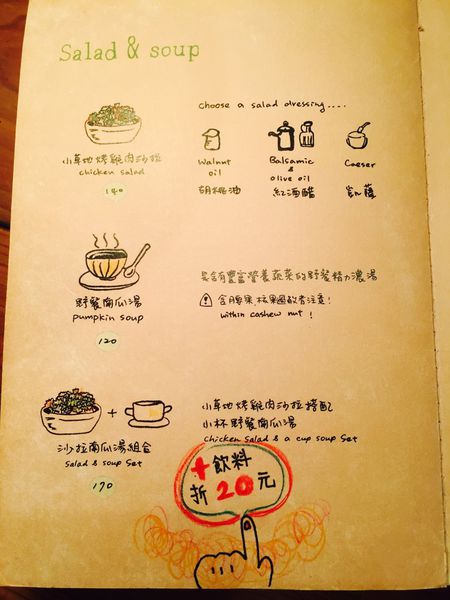 Salad & soup
choose a salad dressing....
小草地烤雞肉沙拉
chicken salad
140
Walnut oil
胡桃油
Balsamic & olive oil
紅酒醋
Caeser
凱薩
野餐南瓜湯
pumpkin soup
120
含有豐富營養蔬菜的野餐精力濃湯
含腰果,核果過敏者注意!
within cashew nut !
沙拉南瓜湯組合
Salad & soup Set
170
小草地烤雞肉沙拉搭配
小杯野餐南瓜湯
Chicken salad & a cup soup Set
+飲料
折20元